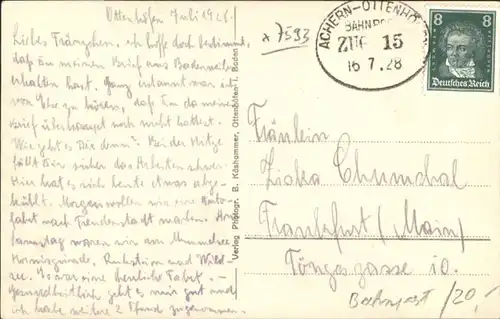 Ottenhöfen Juli 1928.
Liebes Fränzchen, ich hoffe doch bestimmt,
daß du meinen Brief aus Badenweiler
erhalten hast. Ganz erstaunt war ich
von Ilse zu hören, daß du da meinen
Brief überhaupt noch nicht hattest.
Wie geht es Dir denn? Bei der Hitze
fällt Dir sicher das Arbeiten schwer.
Hier hat es sich heute etwas abge-
kühlt. Morgen wollen wir eine Auto-
fahrt nach Freudenstadt machen. Am
Samstag waren wir am Mummelsee
Hornisgrinde, Ruhstein und Wild
see. Es war eine herrliche Fahrt. –
Gesundheitlich geht es mir gut und
ich habe weitere 2 Pfund zugenommen.
Verlag Photogr. B. Käshammer, Ottenhöfen i. Baden
* 7593
ACHERN-OTTENHÖFEN
BAHNPOST
ZUG 15
16 7.28
8 8
Deutsches Reich
Fräulein
Frankfurt (Main)
Töngesgasse 10.
Bahnpost /20,-